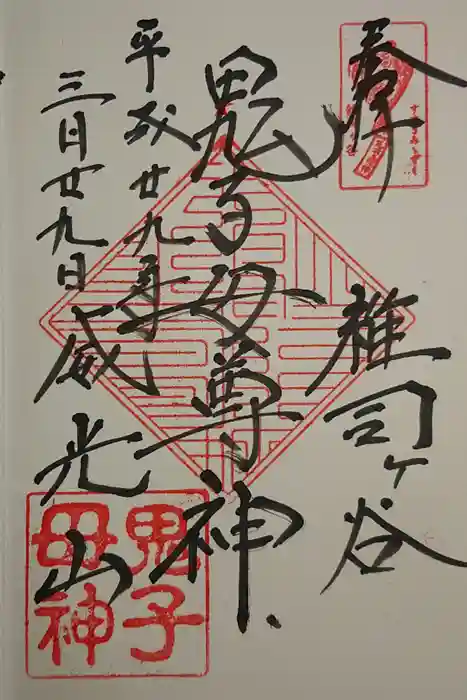 奉
雑司ヶ谷
鬼子母尊神
平成廿九年
三月廿九日
威光山
鬼子
母神